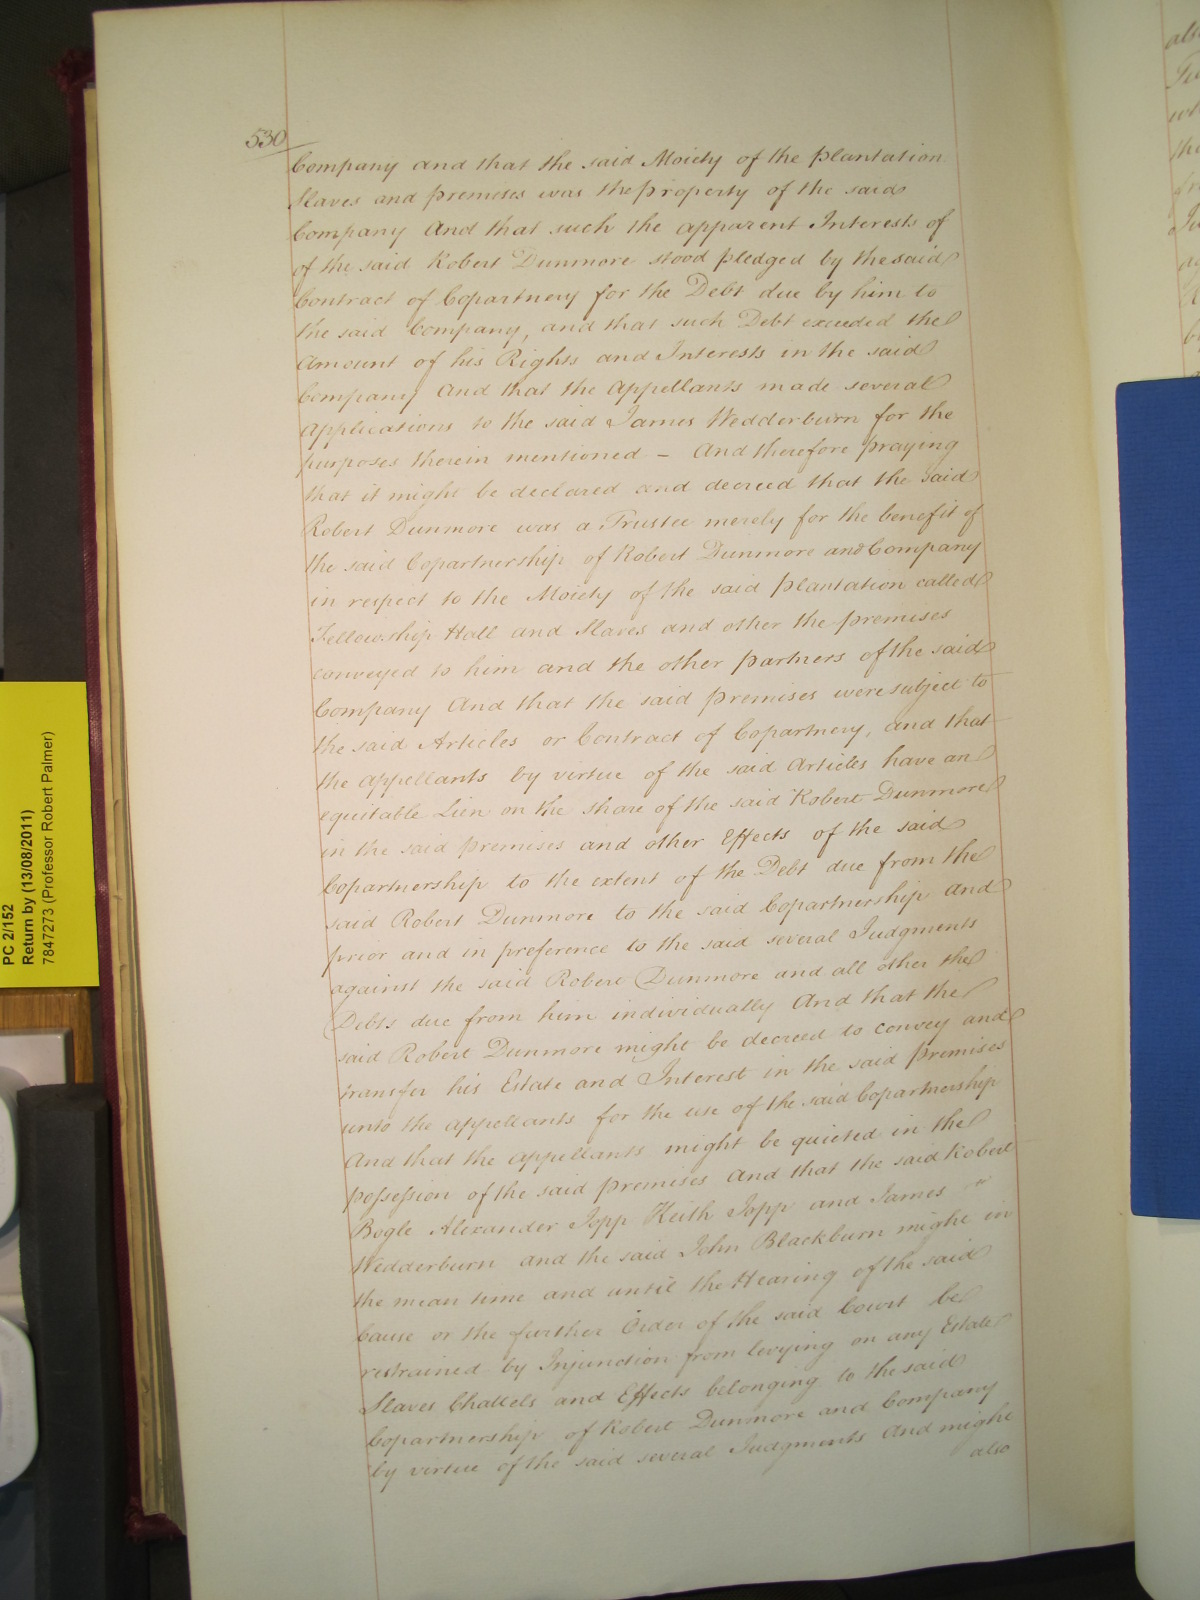 530
Company and that the said Moiety of the plantation
Slaves and premises was the property of the said
Company And that such the apparent Interests of
of the said Robert Dunmore stood pledged by the said
Contract of Copartnery for the Debt due by him to
the said Company, and that such Debt exceeded the
Amount of his Rights and Interests in the said
Company And that the Appellants made several
Applications to the said James Wedderburn for the
purposes therein mentioned – And therefore praying
that it might be declared and decreed that the said
Robert Dunmore was a Trustee merely for the benefit of
the said Copartnership of Robert Dunmore and Company
in respect to the Moiety of the said plantation called
Fellowship Hall and Slaves and other the premises
conveyed to him and the other partners of the said
Company And that the said premises were subject to
the said Articles or Contract of Copartnery, and that
the appellants by virtue of the said Articles have an
equitable Lien on the share of the said Robert Dunmore
in the said premises and other Effects of the said
Copartnership to the extent of the Debt due from the
said Robert Dunmore to the said Copartnership and
prior and in preference to the said several Judgments
against the said Robert Dunmore and all other the
Debts due from him individually And that the
said Robert Dunmore might be decreed to convey and
transfer his Estate and Interest in the said premises
unto the appellants for the use of the said Copartnership
And that the appellants might be quieted in the
possession of the said premises And that the said Robert
Bogle Alexander Jopp Keith Jopp and James "
Wedderburn and the said John Blackburn might in
the mean time and until the Hearing of the said
Cause or the further Order of the said Court be
restrained by Injunction from levying on any Estate
Slaves Chattels and Effects belonging to the said
Copartnership of Robert Dunmore and Company
by virtue of the said several Judgments And might
also
PC 2/152
Return by (13/08/2011)
7847273 (Professor Robert Palmer)